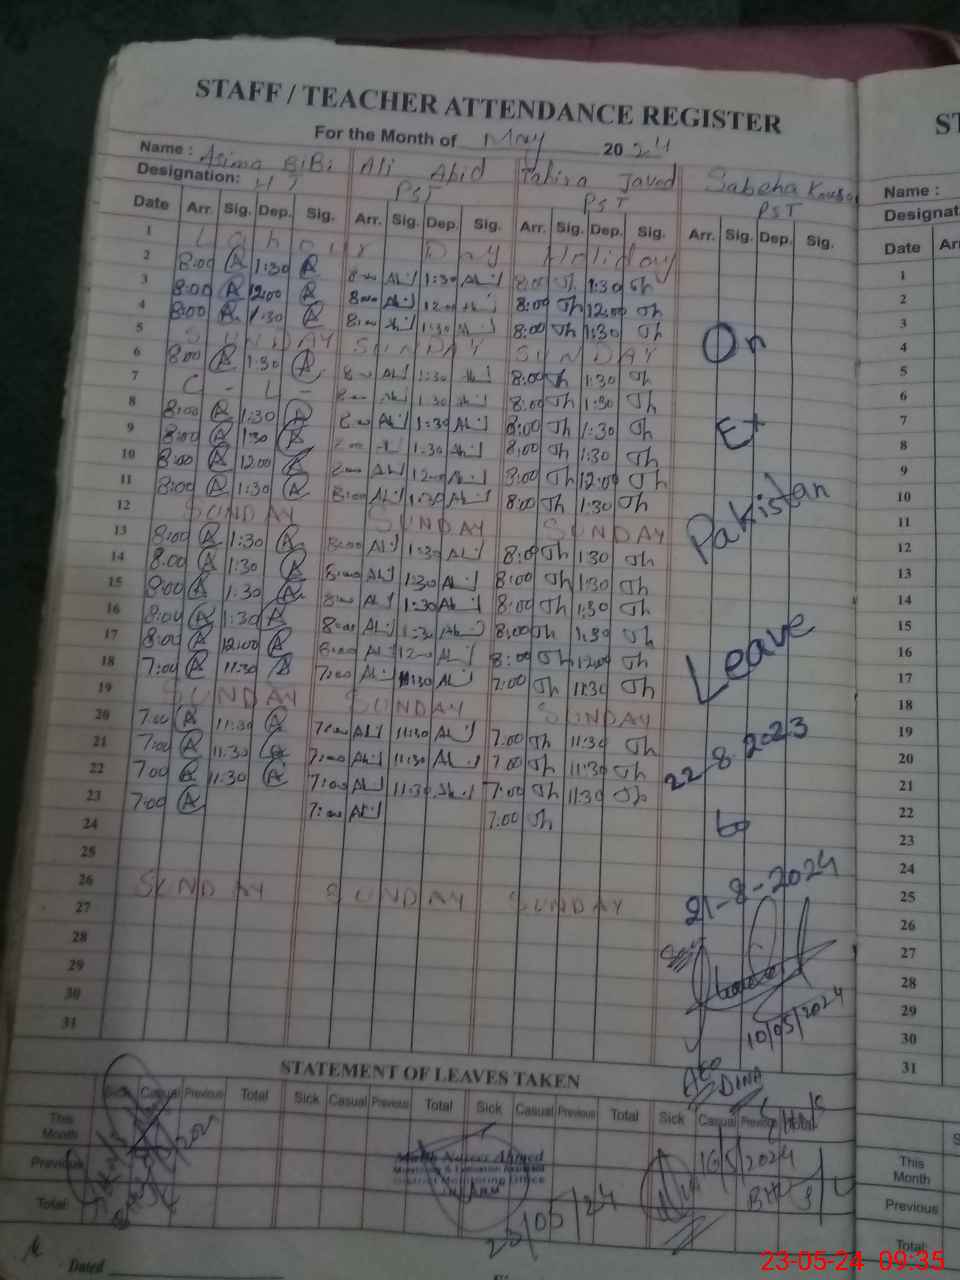 STAFF / TEACHER ATTENDANCE REGISTER
For the Month of May 2024
Name : Asima BiBi Ali Abid Tahira Javed Sabeha Kousar
Designation: PST PST PST
Date Arr. Sig. Dep. Sig. Arr. Sig. Dep. Sig. Arr. Sig. Dep. Sig. Arr. Sig. Dep. Sig.
1 Labour Day Holiday
2 8:00 A 1:30 A 8:00 Ali 1:30 Ali 8:00 Th 1:30 Th
3 8:00 A 12:00 A 8:00 Ali 12:00 Ali 8:00 Th 12:00 Th
4 8:00 A 1:30 A 8:00 Ali 1:30 Ali 8:00 Th 1:30 Th
5 SUNDAY SUNDAY SUNDAY
6 8:00 A 1:30 A 8:00 Ali 1:30 Ali 8:00 Th 1:30 Th
7 C - L - 8:00 Ali 1:30 Ali 8:00 Th 1:30 Th
8 8:00 A 1:30 A 8:00 Ali 1:30 Ali 8:00 Th 1:30 Th
9 8:00 A 1:30 A 8:00 Ali 1:30 Ali 8:00 Th 1:30 Th
10 8:00 A 12:00 A 8:00 Ali 12:00 Ali 8:00 Th 12:00 Th
11 8:00 A 1:30 A 8:00 Ali 1:30 Ali 8:00 Th 1:30 Th
12 SUNDAY SUNDAY SUNDAY
13 8:00 A 1:30 A 8:00 Ali 1:30 Ali 8:00 Th 1:30 Th
14 8:00 A 1:30 A 8:00 Ali 1:30 Ali 8:00 Th 1:30 Th
15 8:00 A 1:30 A 8:00 Ali 1:30 Ali 8:00 Th 1:30 Th
16 8:00 A 1:30 A 8:00 Ali 1:30 Ali 8:00 Th 1:30 Th
17 8:00 A 12:00 A 8:00 Ali 12:00 Ali 8:00 Th 12:00 Th
18 7:00 A 11:30 A 7:00 Ali 11:30 Ali 7:00 Th 11:30 Th
19 SUNDAY SUNDAY SUNDAY
20 7:00 A 11:30 A 7:00 Ali 11:30 Ali 7:00 Th 11:30 Th
21 7:00 A 11:30 A 7:00 Ali 11:30 Ali 7:00 Th 11:30 Th
22 7:00 A 11:30 A 7:00 Ali 11:30 Ali 7:00 Th 11:30 Th
23 7:00 A 7:00 Ali 7:00 Th
24
25
26 SUNDAY SUNDAY SUNDAY
27
28
29
30
31
On
Ex
Pakistan
Leave
22-8-2023
to
21-8-2024
10/05/2024
DINA
STATEMENT OF LEAVES TAKEN
Sick Casual Previous Total Sick Casual Previous Total Sick Casual Previous Total Sick Casual Previous Total
This Month
Previous
Total
Ahmed
Monitoring & Evaluation Assistant
District Monitoring Office
20/05/24
16/5/2024
Dated
ST
Name :
Designat
Date Arr
1
2
3
4
5
6
7
8
9
10
11
12
13
14
15
16
17
18
19
20
21
22
23
24
25
26
27
28
29
30
31
S
This Month
Previous
Total:
23-05-24 09:35